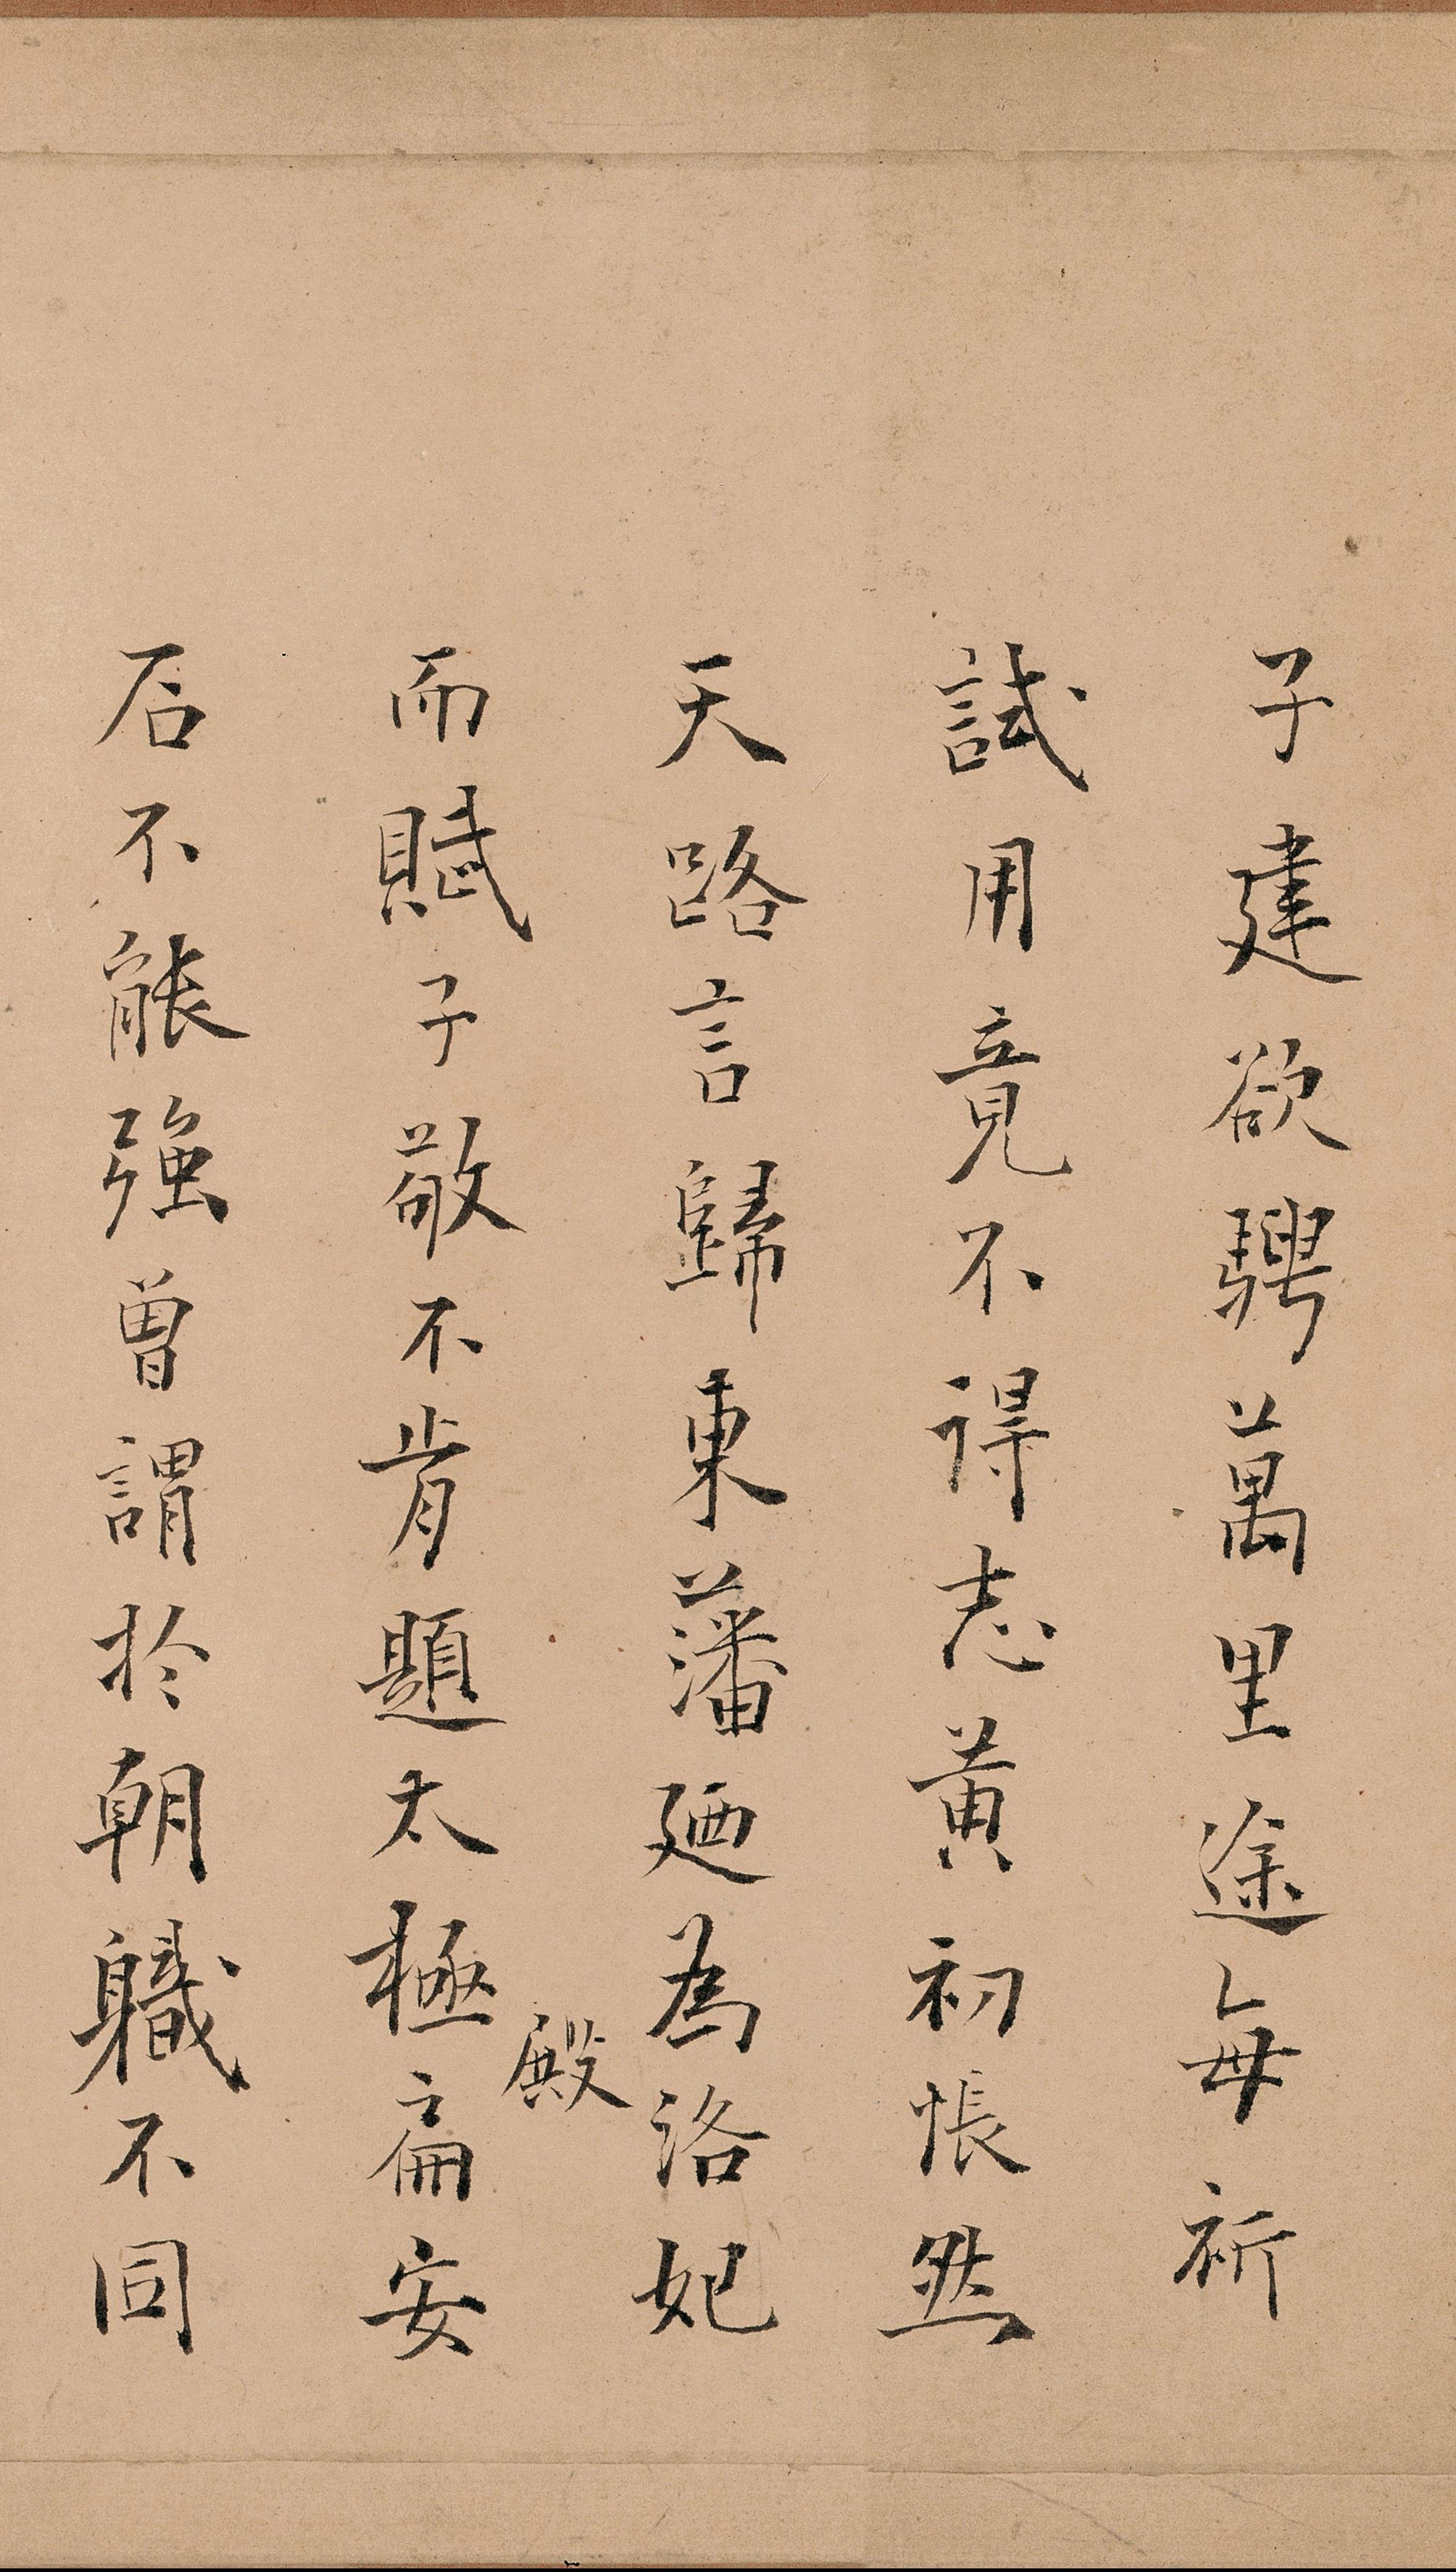 子建欲騁萬里途每祈
試用竟不得志黄初悵然
天路言歸東藩廼為洛妃
而賦子敬不肯題太極殿扁安
石不能強曾謂於朝軄不同